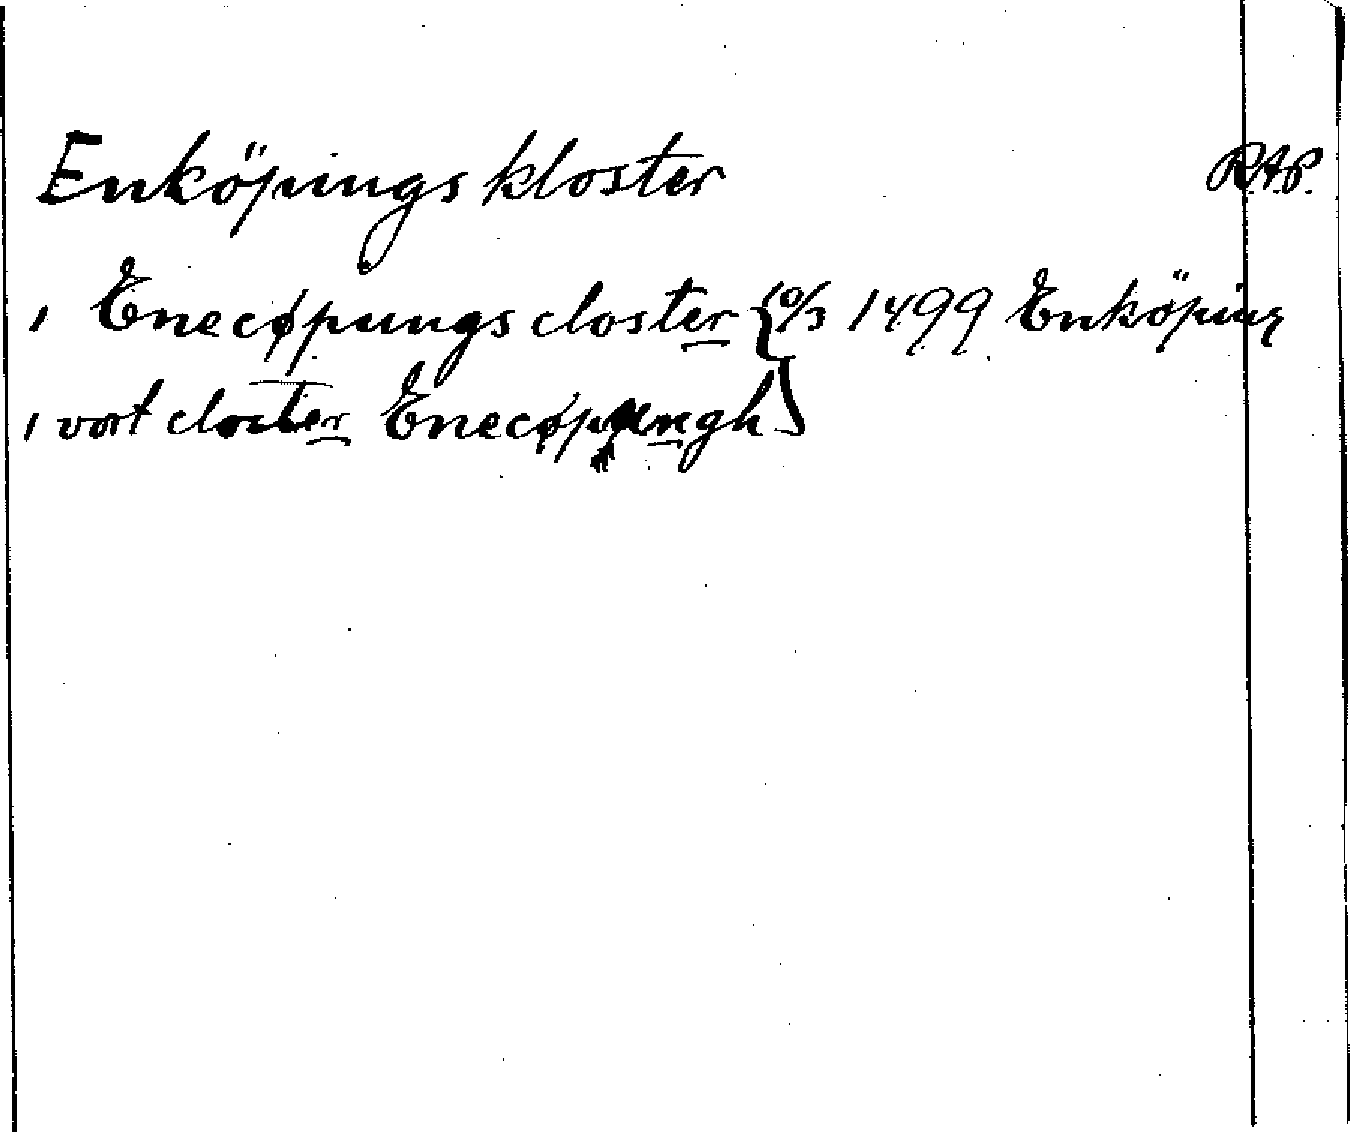 Enköpings kloster R.A.P.
i Enecøpungs closter {10/3 1499 Enköping
i vort closter Enecøpungh}